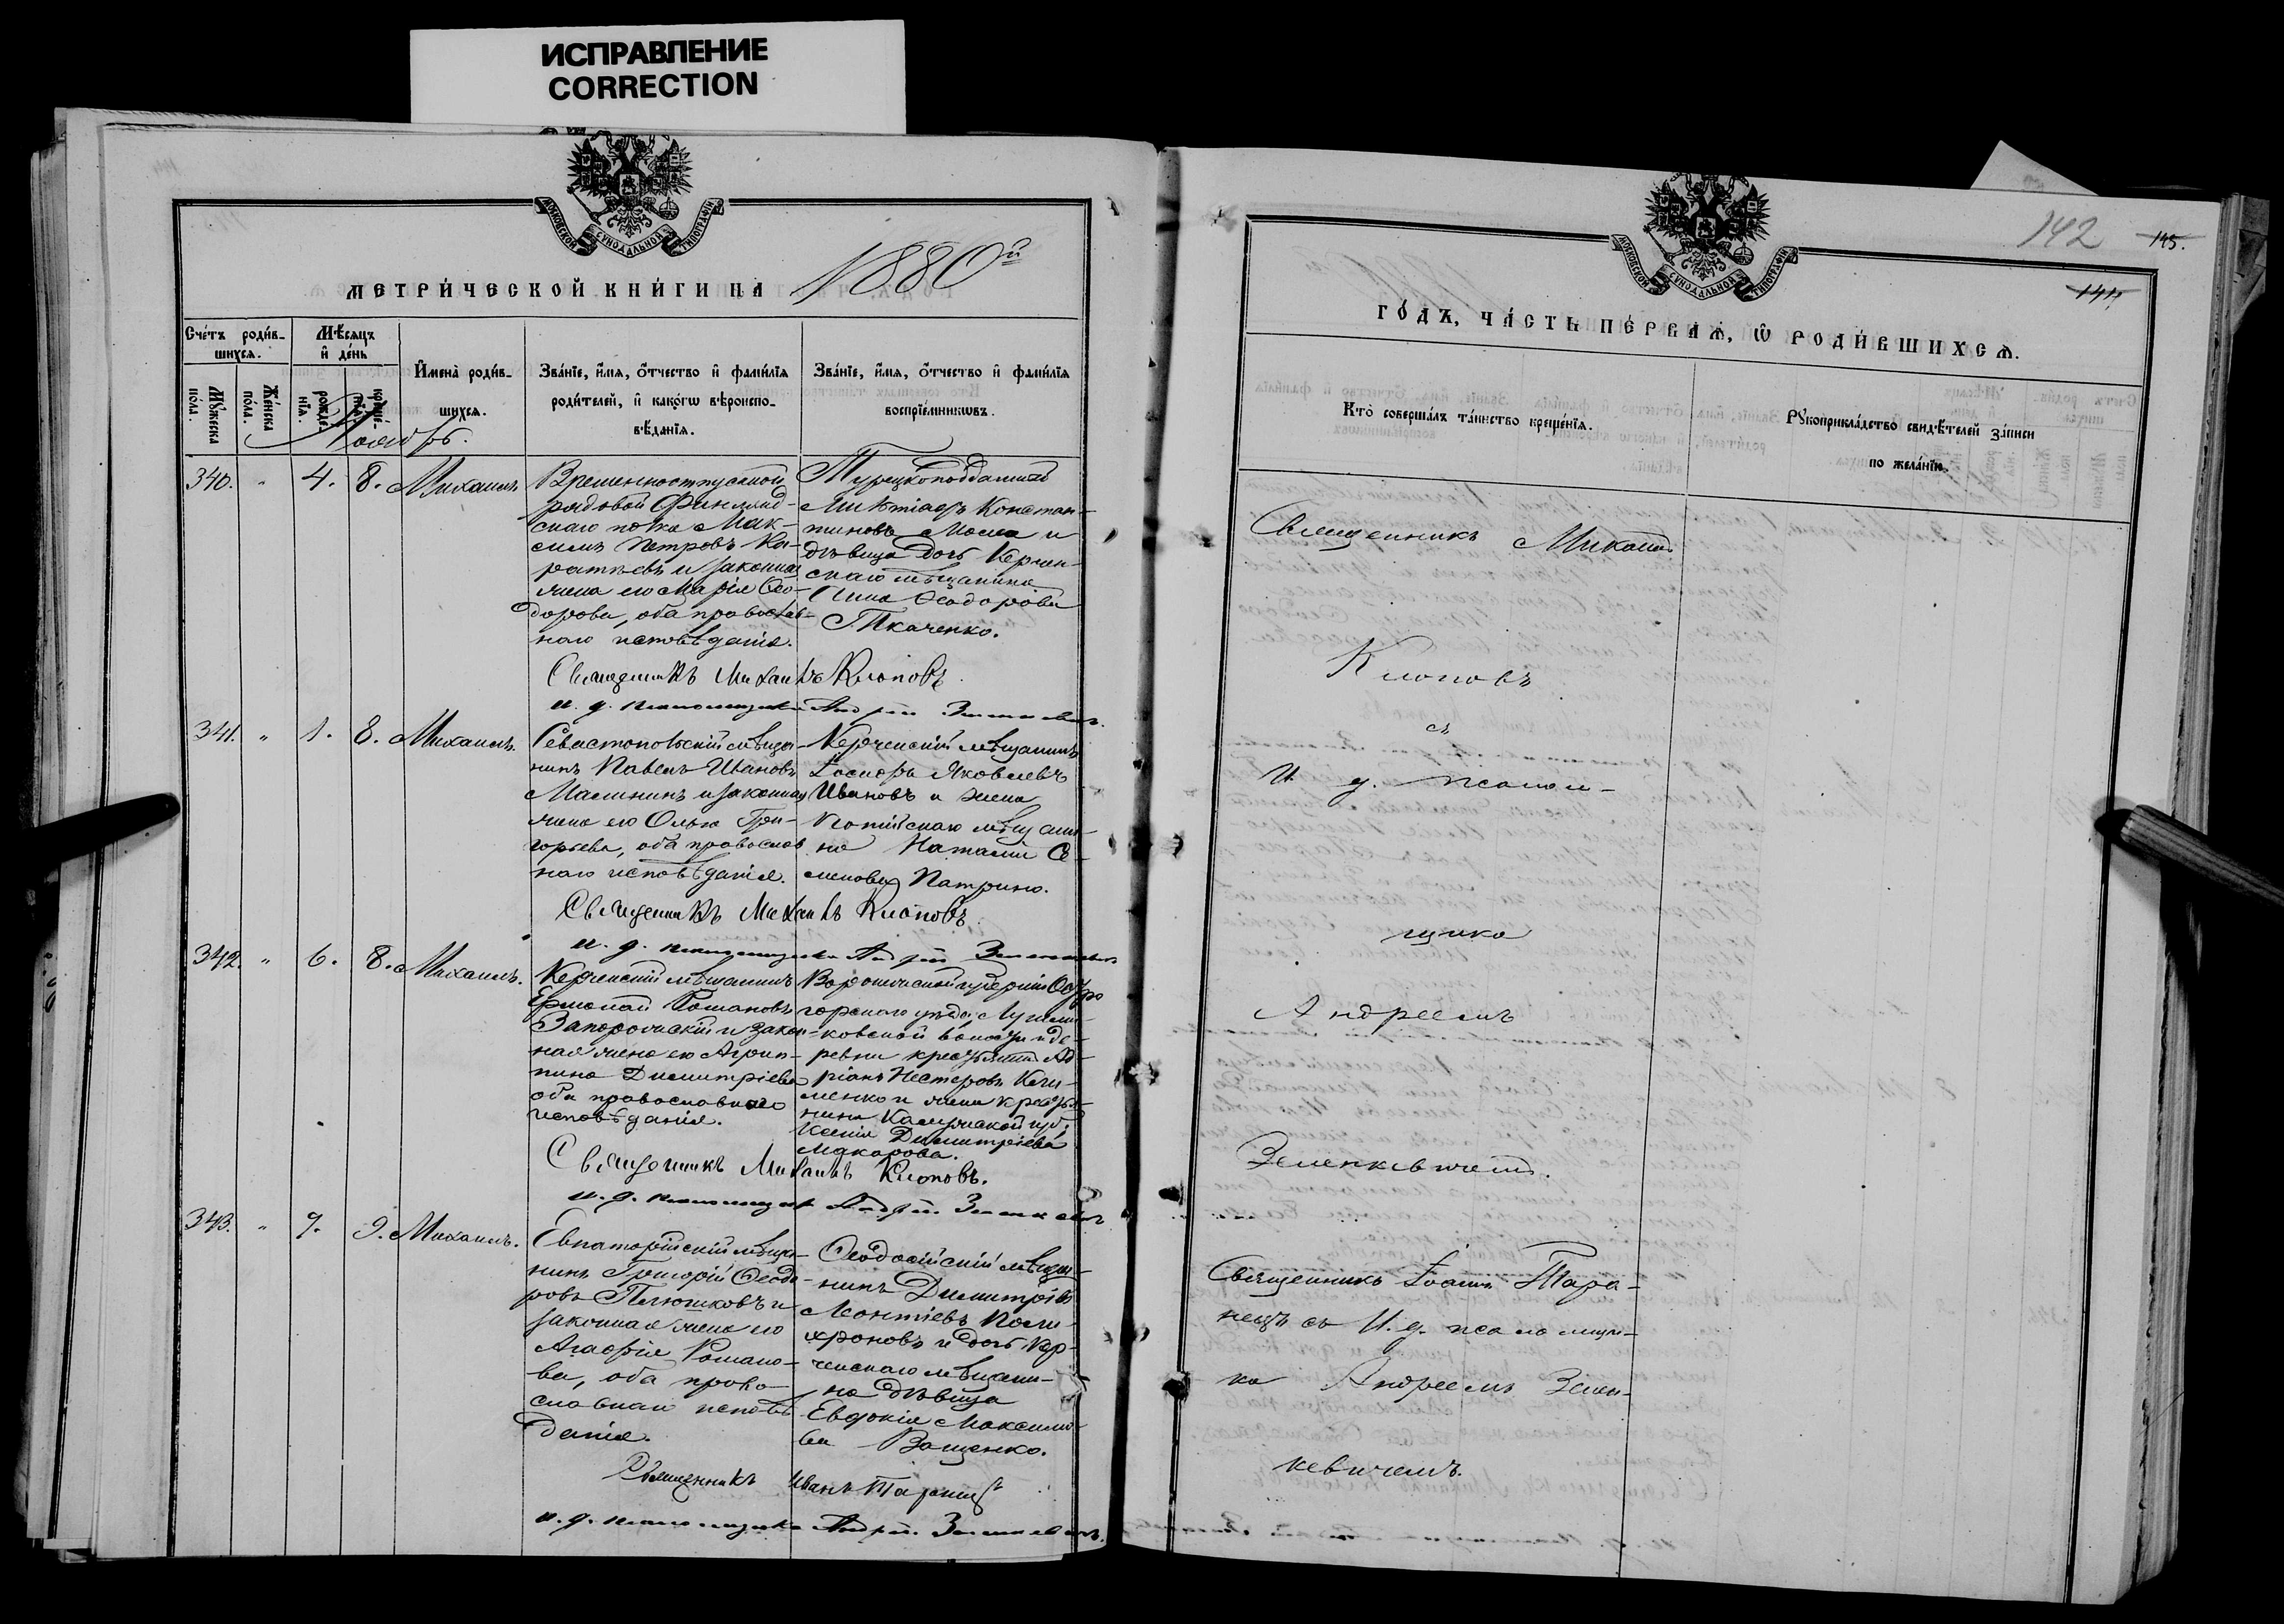 ИСПРАВЛЕНИЕ
CORRECTION
МОСКОВСКОЙ СѴНОДАЛЬНОЙ ТИПОГРАФІИ
МЕТРИ́ЧЕСКОЙ КНИ́ГИ НА 1880й
Сче́тъ роди́в-
шихся.
Мѣ́сяцъ
и҆ де́нь
Му́жеска по́ла.
Же́нска по́ла.
рожде́-
нїѧ.
креще́-
нїѧ.
И҆мена̀ роди́в-
шихся.
Зва́нїе, и҆́мя, о҆́тчество и҆ фами́лїя
роди́телей, и҆ како́гѡ вѣроиспо-
вѣ́данїя.
Зва́нїе, и҆́мя, о҆́тчество и҆ фами́лїя
воспрїе́мникѡвъ.
Ноябрь.
340. " 4. 8. Михаилъ.
Временноотпускной
рядовой Финлянд-
скаго полка Мак-
симъ Петровъ Ка-
ратѣевъ и законная
жена его Марія Ѳео-
дорова, оба православ-
наго исповѣданія.
Турецкоподданный
Милтіадъ Констан-
тиновъ и
дѣвица дочь Керчен-
скаго мѣщанина
Анна Ѳеодорова
Ткаченко.
Священникъ Михаилъ Клоповъ
и. д. псаломщика Андрей Зеленкевичъ.
341. " 1. 8. Михаилъ.
Севастопольскій мѣща-
нинъ Павелъ Ивановъ
Малининъ и законная
жена его Ольга Гри-
горьева, оба православ
наго исповѣданія.
Керченскій мѣщанинъ
Іосифъ Яковлевъ
Ивановъ и жена
мѣщани-
на Наталія Се-
менова Патрино.
Священникъ Михаилъ Клоповъ
и. д. псаломщика Андрей Зеленкевичъ
342. " 6. 8. Михаилъ.
Керченскій мѣщанинъ
Ермолай Романовъ
Запорожскій и закон-
ная жена его Агрип-
пина Димитріева
оба православнаго
исповѣданія.
Воронежской губерніи Остро
горскаго уѣзда,
ковской волости и де-
ревни крестьянинъ Ад-
ріанъ Нестеровъ Кли-
менко и жена крестья-
нина Калужской губ.
Ксенія Димитріева
Макарова.
Священникъ Михаилъ Клоповъ.
и. д. псаломщика Андрей Зеленкевичъ
343. " 7. 9. Михаилъ.
Евпаторійскій мѣща-
нинъ Григорій Ѳеодо-
ровъ Плюшковъ и
законная жена его
Агафія Романо-
ва, оба право-
славнаго исповѣ-
данія.
Ѳеодосійскій мѣща-
нинъ Димитрій
Леонтіевъ Поли-
хроновъ и дочь Кер-
ченскаго мѣщани-
на дѣвица
Евдокія Максимо-
ва Ващенко.
Священникъ Иванъ Таранецъ
и. д. псаломщика Андрей Зеленкевичъ.
МОСКОВСКОЙ СѴНОДАЛЬНОЙ ТИПОГРАФІИ
142 145.
144
ГО́ДЪ, ЧА́СТЬ ПЕ́РВАѦ, Ѡ РОДИ́ВШИХСѦ.
Кто̀ соверша́лъ та́инство креще́нїя.
Рꙋкоприкла́дство свидѣ́телей за́писи
по жела́нїю.
Священникъ Михаилъ
Клоповъ
съ
И. д. псалом-
щика
Андреемъ
Зеленкевичемъ.
Священникъ Іоаннъ Тара-
нецъ съ И. д. псаломщи-
ка Андреемъ Зелен-
кевичемъ.